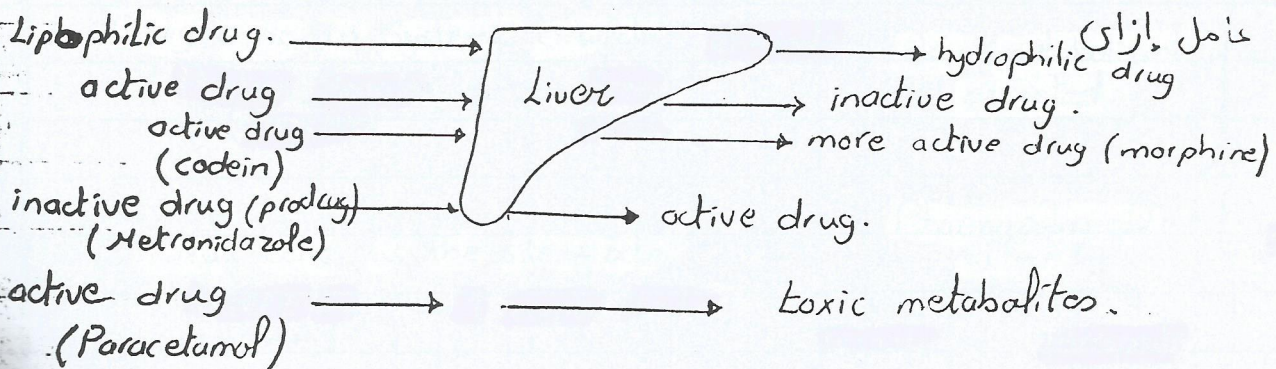 Lipophilic drug.
عامل إزاي
hydrophilic drug
active drug
Liver
inactive drug.
active drug
(codein)
more active drug (morphine)
inactive drug (prodrug)
(Metronidazole)
active drug.
active drug
(Paracetamol)
toxic metabolites.